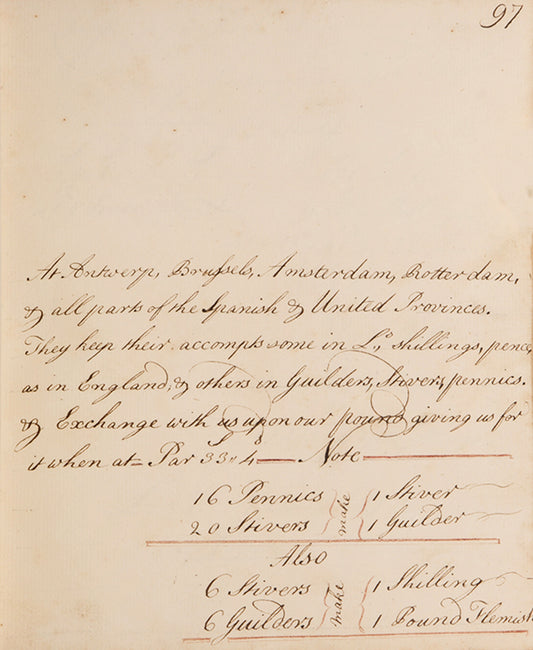 97
At Antwerp, Brussels, Amsterdam, Rotterdam,
& all parts of the Spanish & United Provinces.
They keep their accompts some in L.s, shillings, pence,
as in England, & others in Guilders, Stivers, pennics.
& Exchange with us upon our pound giving us for
it when at Par 33 S 4 d Note
16 Pennics make 1 Stiver
20 Stivers 1 Guilder
Also
6 Stivers make 1 Shilling
6 Guilders 1 Pound Flemish